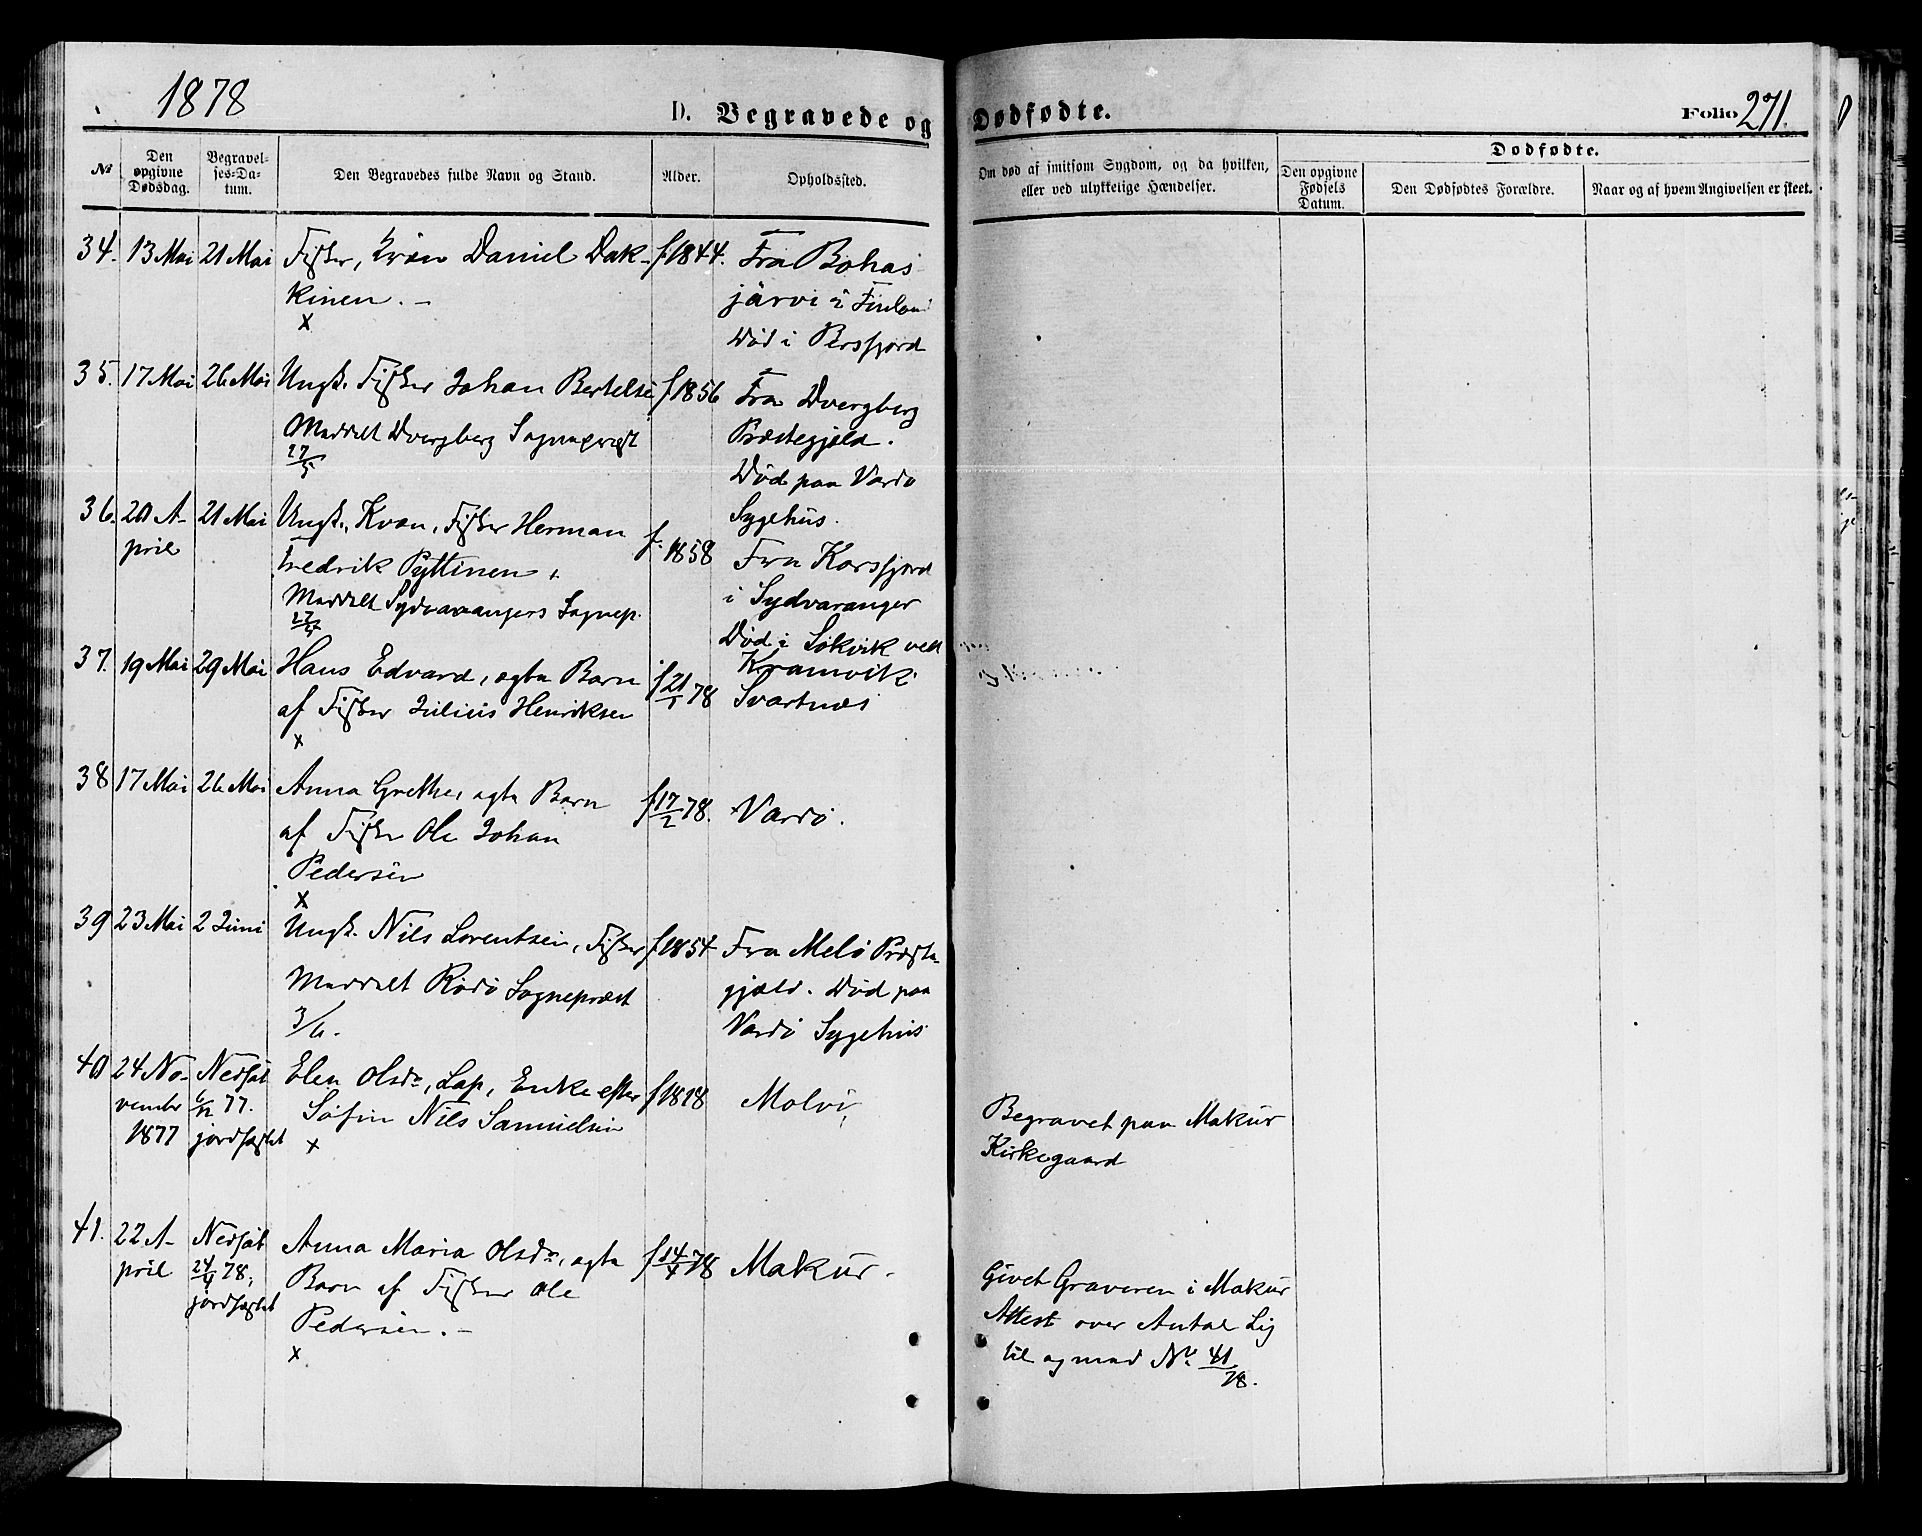 1878
D. Begravede og Dødfødte.
Folio 271.
№
Den opgivne Dødsdag.
Begravelses-Datum.
Den Begravedes fulde Navn og Stand.
Alder.
Opholdssted.
Om død af smitsom Sygdom, og da hvilken, eller ved ulykkelige Hændelser.
Dødfødte.
Den opgivne Fødsels Datum.
Den Dødfødtes Forældre.
Naar og af hvem Angivelsen er skeet.
34. 13 Mai 21 Mai Fisker, Kvæn Daniel Dak- f. 1844. Fra Bohas
kinen. – järvi i Finlan
x Død i Persfjord
35. 17 Mai 26 Mai Ungk. Fisker Johan Bertelse f 1856 Fra Dvergberg
Meddelt Dvergberg Sognepræst Præstegjeld.
27/5 Død paa Vardø
Sygehus.
36. 20 A- 21 Mai Ungk., Kvæn, Fisker Herman f. 1858 Fra Korsfjord
pril Fredrik Pyttinen, i Sydvaranger
Meddelt Sydvarangers Sognep. Død i Sokvik ved
Kramvik
37. 19 Mai 29 Mai Hans Edvard, ægte Barn f 21/1 78 Svartnæs
af Fisker Julius Henriksen
x
38 17 Mai 26 Mai Anna Grethe, ægte Barn f 17/2 78. Vardø.
af Fisker Ole Johan
Pedersen
x
39 23 Mai 2 Juni Ungk. Nils Lorentsen, Fisker f 1854 Fra Melø Præste-
Meddelt Rødø Sognepræst gjeld. Død paa
3/6. Vardø Sygehus
40 24 No- Nedsat Elen Olsdr, Lap, Enke efter f 1818 Molvi
vember 6/12 77. Søfin Nils Samuelsen
1877 jordfæstet x
Begravet paa Makur
Kirkegaard
41. 22 A- Nedsat Anna Maria Olsdr, ægte f 14/4 78 Makur.
pril 24/4 78, Barn af Fisker Ole
jordfæstet Pedersen. –
x
Givet Graveren i Makur
Attest over Antal Lig
til og med No. 41/78.